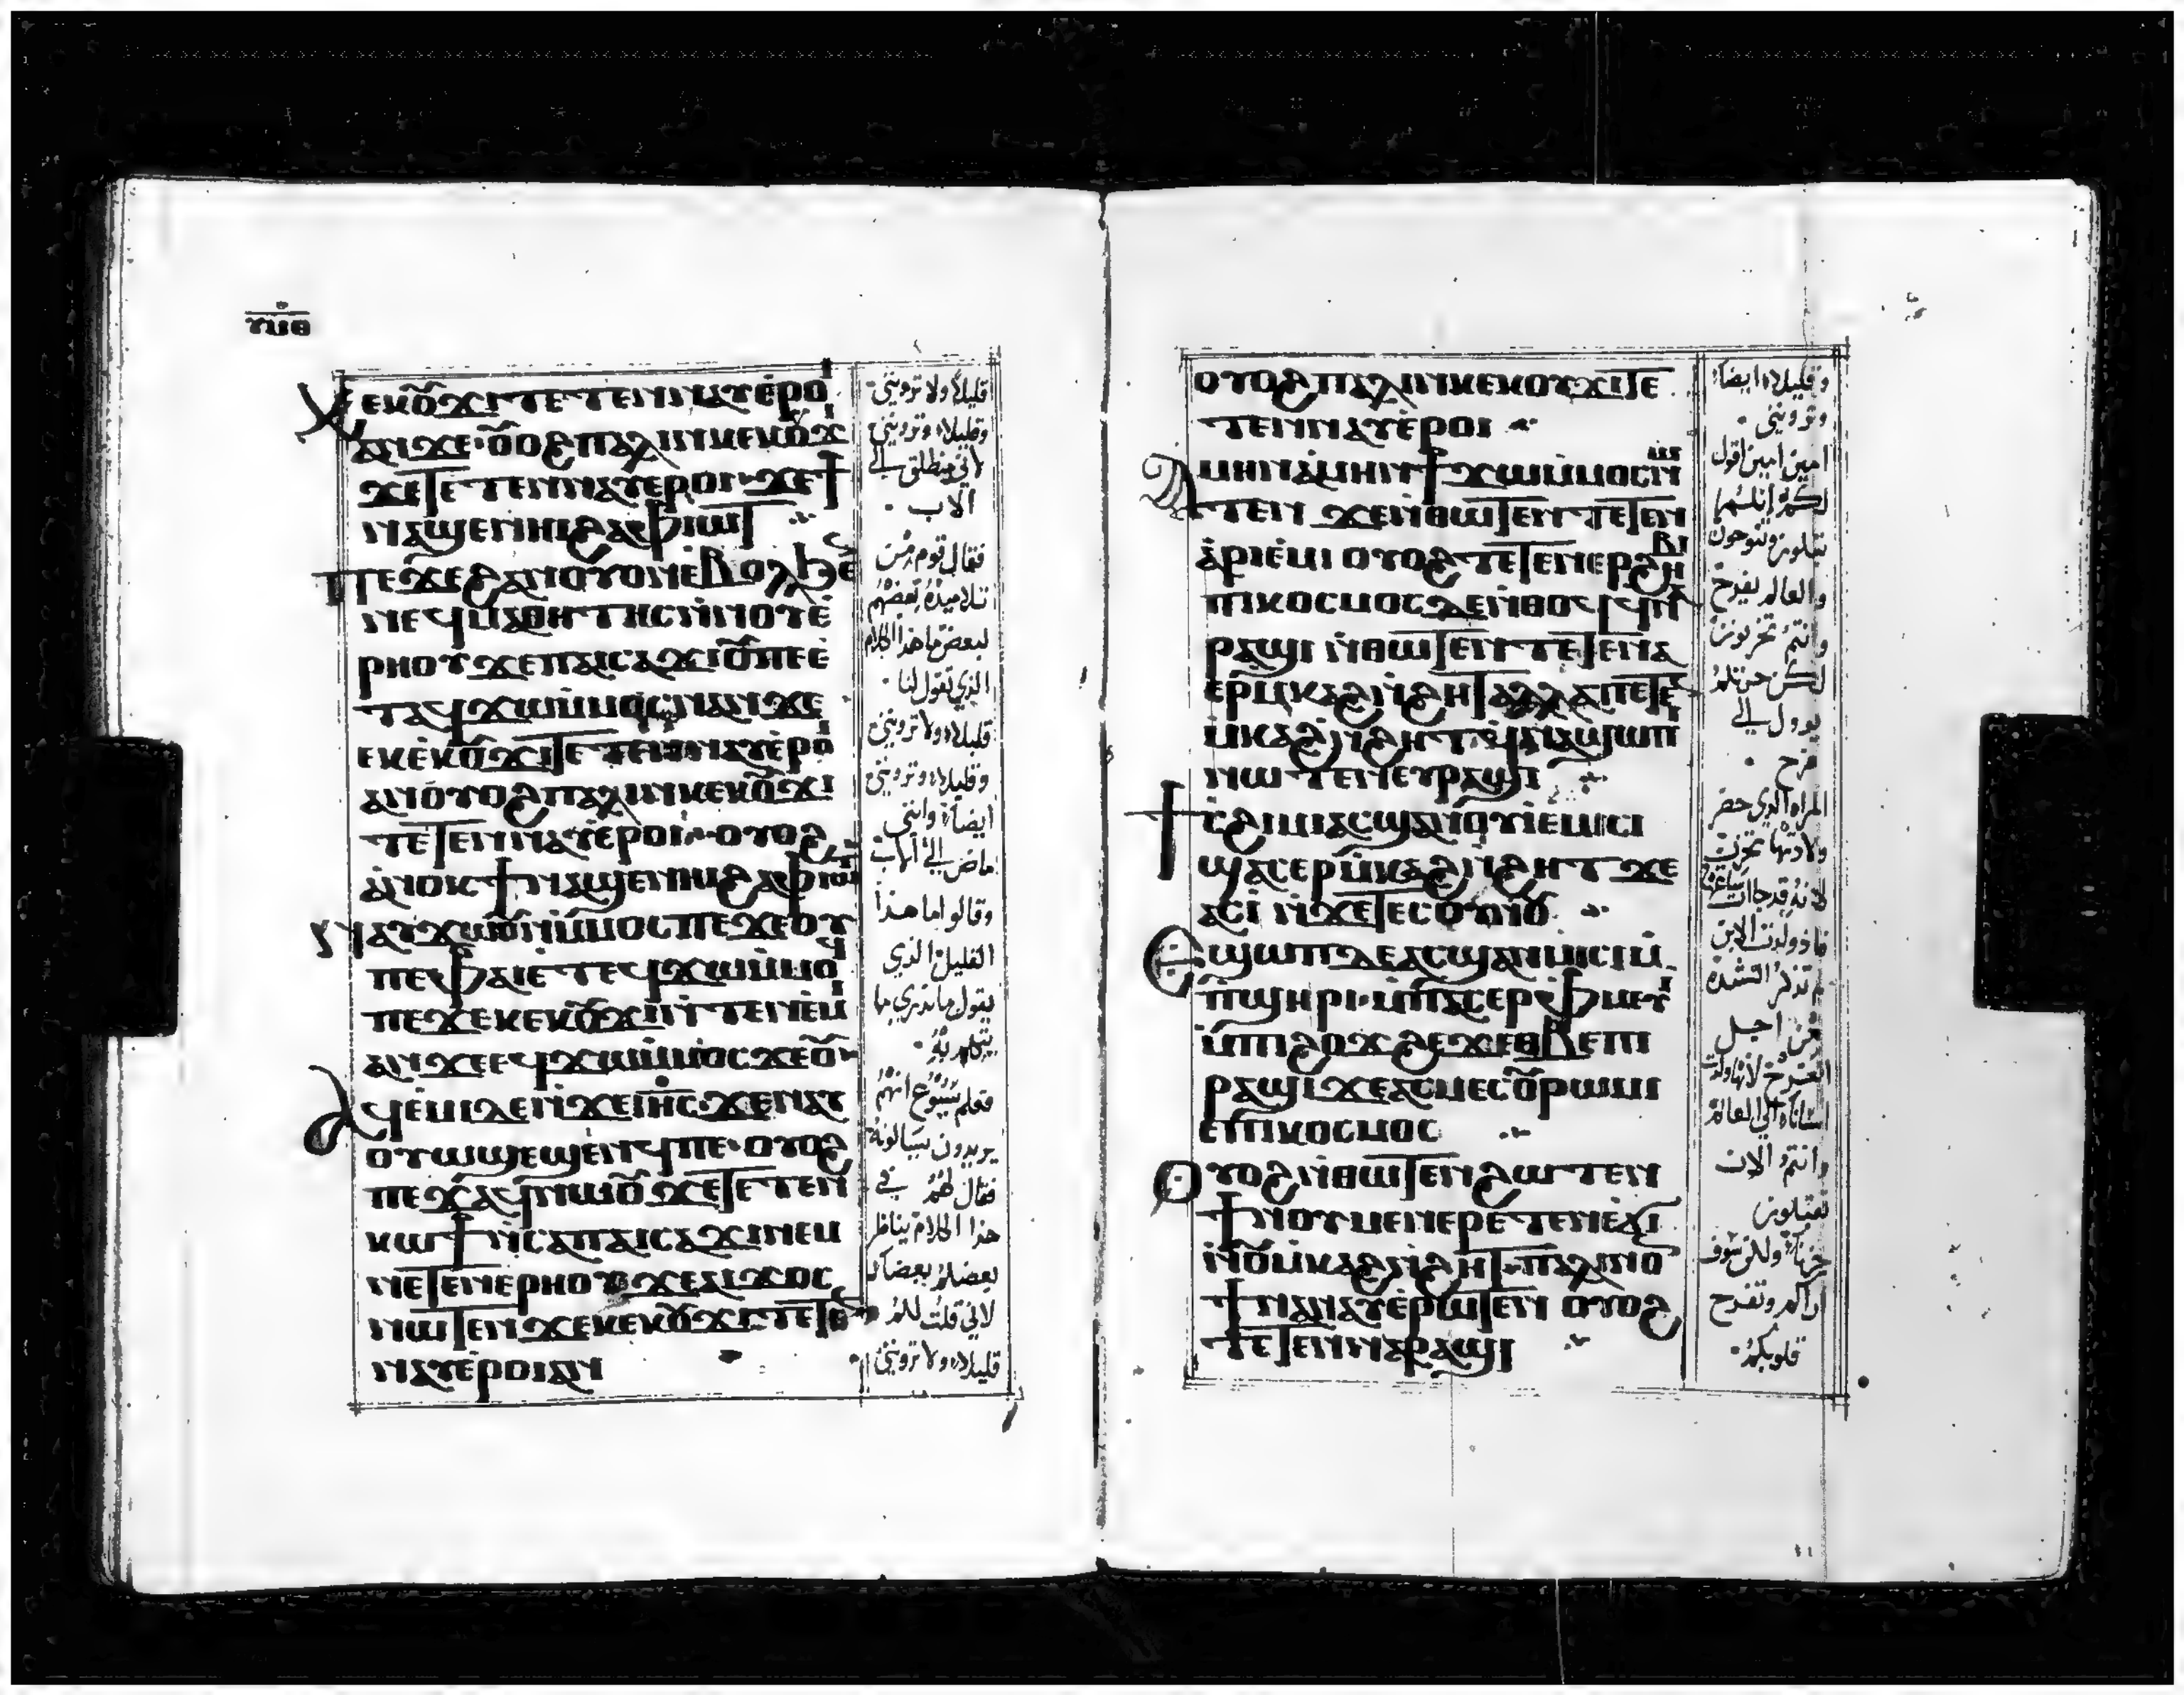 ⲩⲡⲑ
ⲭⲉⲕⲟⲩϫⲓⲧⲉⲧⲉⲛⲛⲁⲩⲉⲣⲟⲓ
ⲁⲛϫⲉ ⲟⲩⲟϩⲡⲁⲗⲓⲛⲕⲉⲕⲟⲩϫ
ϫⲉⲧⲉⲧⲉⲛⲛⲁⲩⲉⲣⲟⲓ ϫⲉϯ
ⲛⲁϣⲉⲛⲏⲓϩⲁⲫⲓⲱⲧ
ⲡⲉϫⲉϩⲁⲛⲟⲩⲟⲛⲉⲃⲟⲗϧⲉ
ⲛⲉϥⲙⲁⲑⲏⲧⲏⲥⲛⲛⲟⲩⲉ
ⲣⲏⲟⲩϫⲉⲡⲁⲓⲥⲁϫⲓⲟⲩⲡⲉⲉ
ⲧⲁϥϫⲱⲙⲙⲟⲥⲛⲁⲛϫⲉ
ⲕⲉⲕⲟⲩϫⲓⲧⲉⲧⲉⲛⲛⲁⲩⲉⲣⲟⲓ
ⲁⲛⲟⲩⲟϩⲡⲁⲗⲓⲛⲕⲉⲕⲟⲩϫⲓ
ⲧⲉⲧⲉⲛⲛⲁⲩⲉⲣⲟⲓ ⲟⲩⲟϩ
ⲁⲛⲟⲕϯⲛⲁϣⲉⲛⲏⲓϩⲁⲫⲓⲱⲧ
ⲛⲁⲩϫⲱⲟⲩⲛⲙⲙⲟⲥⲡⲉϫⲉⲟⲩ
ⲡⲉⲫⲁⲓⲉⲧⲉϥϫⲱⲙⲙⲟϥ
ⲡⲉϫⲉⲕⲉⲕⲟⲩϫⲓⲛⲧⲉⲛⲉⲙⲓ
ⲁⲛϫⲉⲉϥϫⲱⲙⲙⲟⲥϫⲉⲟⲩ
ⲁϥⲉⲙⲓⲇⲉⲛϫⲉⲓⲏⲥ ϫⲉⲛⲁⲩ
ⲟⲩⲱϣⲉϣⲉⲛϥⲡⲉ ⲟⲩⲟϩ
ⲡⲉϫⲁϥⲛⲱⲟⲩ ϫⲉⲧⲉⲧⲉⲛ
ⲕⲱϯⲛⲥⲁⲡⲁⲓⲥⲁϫⲓⲛⲉⲙ
ⲛⲉⲧⲉⲛⲉⲣⲏⲟⲩ ϫⲉⲁⲓϫⲟⲥ
ⲛⲱⲧⲉⲛϫⲉⲕⲉⲕⲟⲩϫⲓⲧⲉⲧⲉ
ⲛⲁⲩⲉⲣⲟⲓⲁⲛ
قليلا ولا تروننى
وقليلا وتروننى
لانى منطلق الى
الاب
فقال قوم من
تلاميذه بعضهم
لبعض ما هذا الكلام
الذى نقول لنا
قليلا ولا تروننى
وقليلا وتروننى
ايضا وانى
ماض الى الاب
وقالوا ما هذا
القليل الذى
يقول ما ندرى ما
يتكلم به
فعلم يسوع انهم
يريدون يسالونه
فقال لهم فى
هذا الكلام يناظر
بعضكم بعضا
لانى قلت لكم
قليلا ولا تروننى
ⲟⲩⲟϩⲡⲁⲗⲓⲛⲕⲉⲕⲟⲩϫⲓⲧⲉ
ⲧⲉⲛⲛⲁⲩⲉⲣⲟⲓ
ⲁⲙⲏⲛⲁⲙⲏⲛϯϫⲱⲙⲙⲟⲥⲛⲱ
ⲧⲉⲛ ϫⲉⲛⲑⲱⲧⲉⲛⲧⲉⲧⲉⲛ
ⲁⲣⲓⲉⲙⲓ ⲟⲩⲟϩⲧⲉⲧⲉⲛⲉⲣϩⲏⲃⲓ
ⲡⲓⲕⲟⲥⲙⲟⲥⲇⲉⲛⲑⲟϥϥⲛⲁ
ⲣⲁϣⲓ ⲛⲑⲱⲧⲉⲛⲧⲉⲧⲉⲛⲁ
ⲉⲣⲙⲕⲁϩⲛϩⲏⲧⲁⲗⲗⲁⲡⲉⲧⲉ
ⲙⲕⲁϩⲛϩⲏⲧϥⲛⲁϣⲱⲡ
ⲛⲱⲧⲉⲛⲉⲩⲣⲁϣⲓ
ϯⲥϩⲓⲙⲓⲁⲥϣⲁⲛⲟⲩⲓⲉⲙⲓⲥⲓ
ϣⲁⲥⲉⲣⲙⲕⲁϩⲛϩⲏⲧϫⲉ
ⲁⲥⲓ ⲛϫⲉⲧⲉⲥⲟⲩⲛⲟⲩ
ⲉϣⲱⲡⲇⲉⲁⲥϣⲁⲛⲙⲓⲥⲓⲙ
ⲡϣⲏⲣⲓ ⲙⲡⲁⲥⲉⲣⲫⲙⲉⲩⲓ
ⲙⲡⲓϩⲟϫϩⲉϫⲉⲑⲃⲉⲡⲓ
ⲣⲁϣⲓ ϫⲉⲁⲥⲙⲉⲥⲟⲩⲣⲱⲙⲓ
ⲉⲡⲓⲕⲟⲥⲙⲟⲥ
ⲟⲩⲟϩⲛⲑⲱⲧⲉⲛϩⲱⲧⲉⲛ
ϯⲛⲟⲩⲙⲉⲛⲉⲣⲉⲧⲉⲛⲉϭⲓ
ⲛⲟⲩⲙⲕⲁϩⲛϩⲏⲧ ⲡⲁⲗⲓⲛⲟ
ϯⲛⲁⲛⲁⲩⲉⲣⲱⲧⲉⲛ ⲟⲩⲟϩ
ⲧⲉⲧⲉⲛⲛⲁⲣⲁϣⲓ
وقليلا ايضا
وتروننى
امين امين اقول
لكم انكم
تبكون وتنوحون
والعالم يفرح
وانتم تحزنون
لكن حزنكم
يوول الى
فرح
المراه اذا حضر
ولادتها تحزن
لانه قد جات ساعتها
فاذا ولدت الابن
لم تذكر الشده
من اجل
الفرح لانها ولدت
انسانا فى العالم
وانتم الان
تقبلون
حزنا ولكن سوف
اراكم وتفرح
قلوبكم